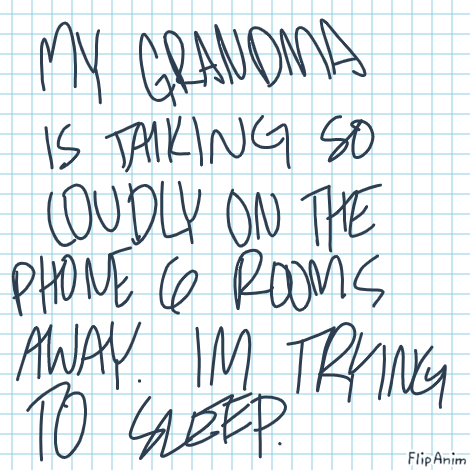 MY GRANDMA
IS TALKING SO
LOUDLY ON THE
PHONE 6 ROOMS
AWAY. IM TRYING
TO SLEEP.
FlipAnim